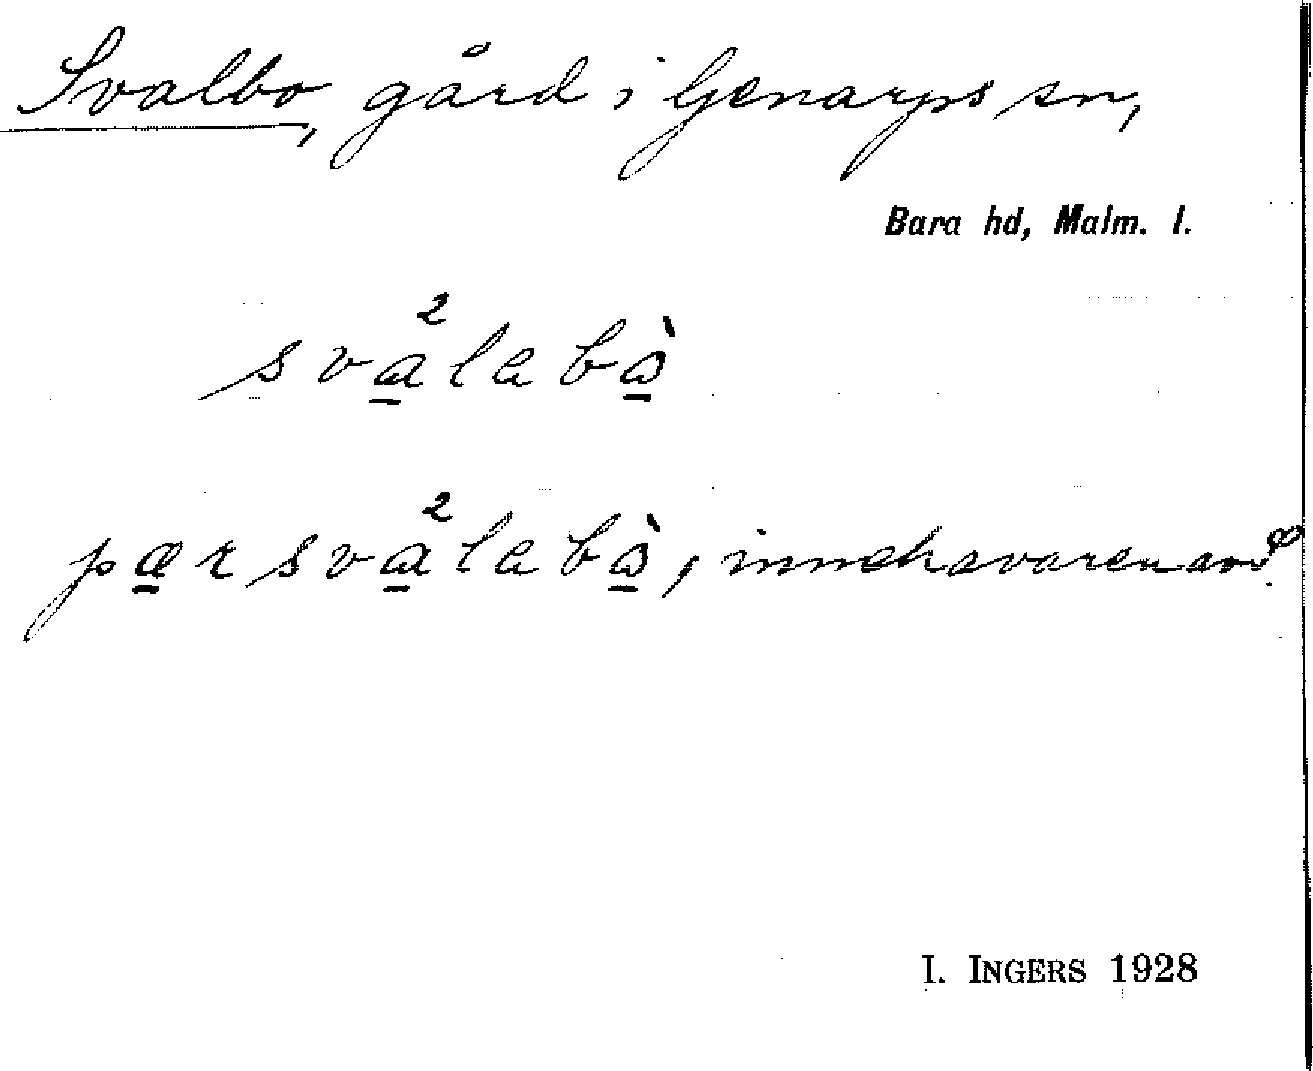 Svalbo, gård i Genarps sn,
Bara hd, Malm. l.
sva²labà
pærsva²labà, innehavaren av
I. INGERS 1928